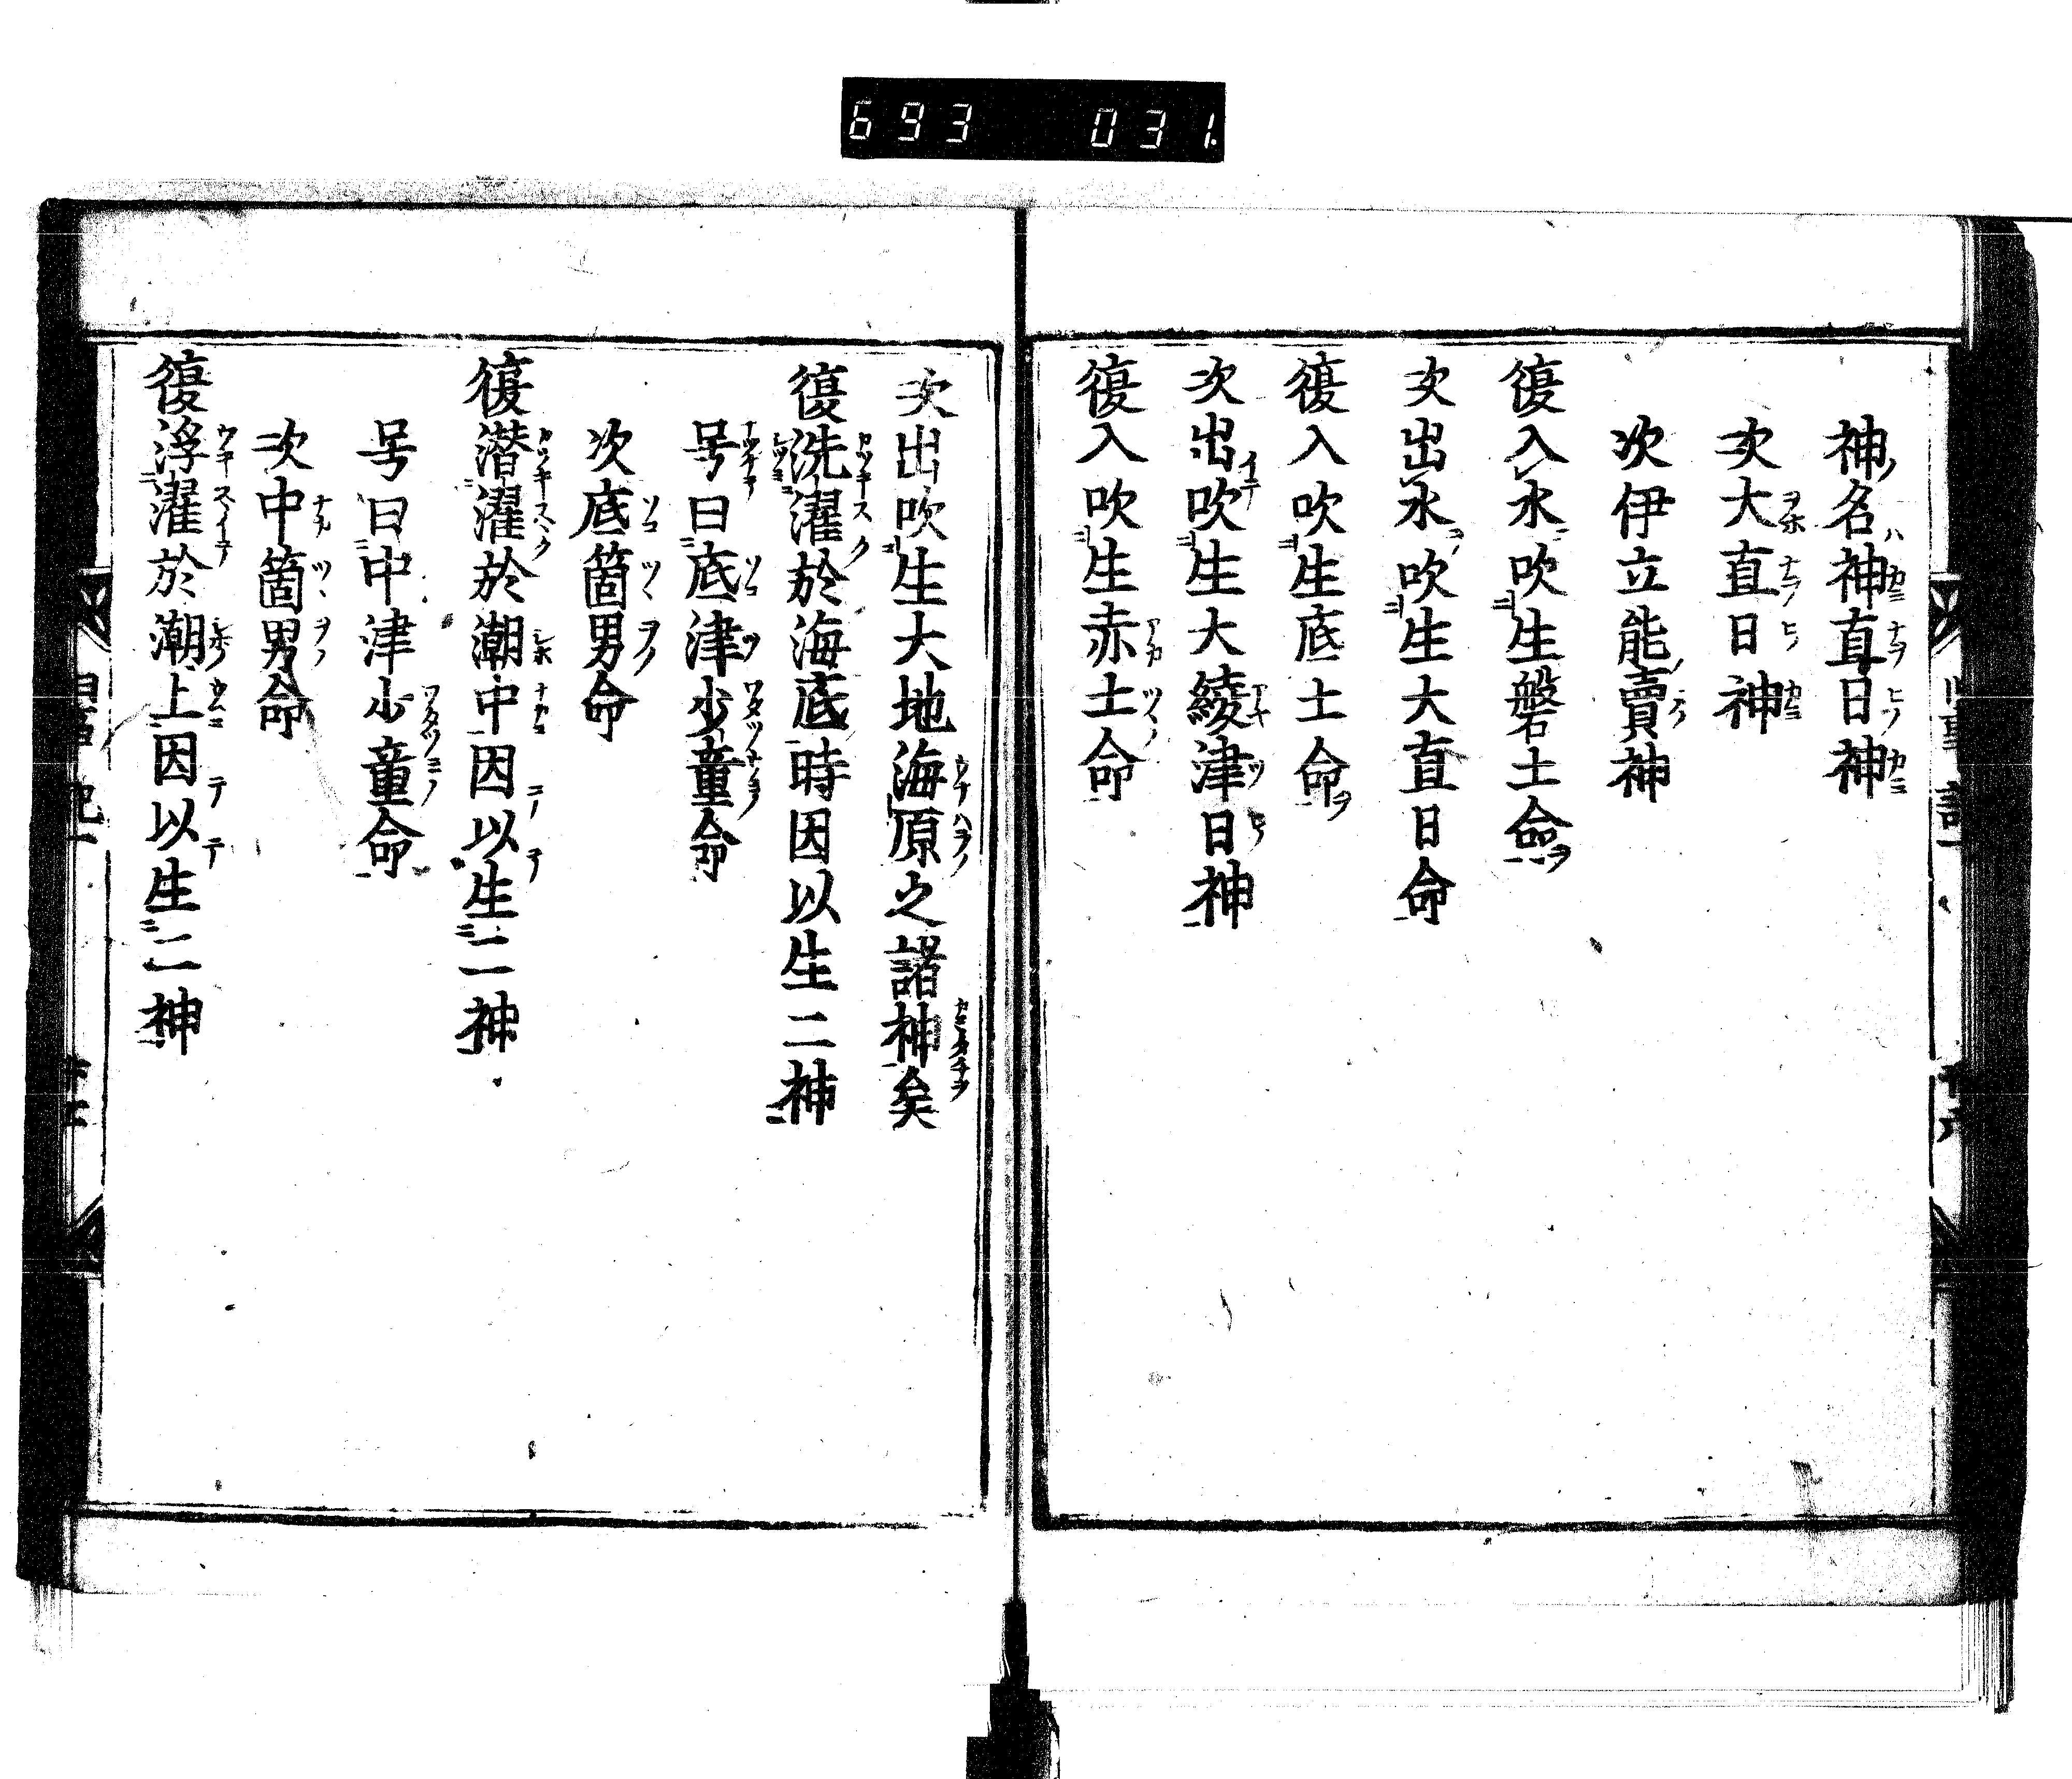 693 031
神名神直日神
次大直日神
次伊立能賣神
復入水吹生磐土命
次出水吹生大直日命
復入吹生底土命
次出吹生大綾津日神
復入吹生赤土命
次出吹生大地海原之諸神矣
復洗濯於海底時因以生二神
号曰底津少童命
次底箇男命
復潜濯於潮中因以生二神
号曰中津少童命
次中箇男命
復浮濯於潮上因以生二神